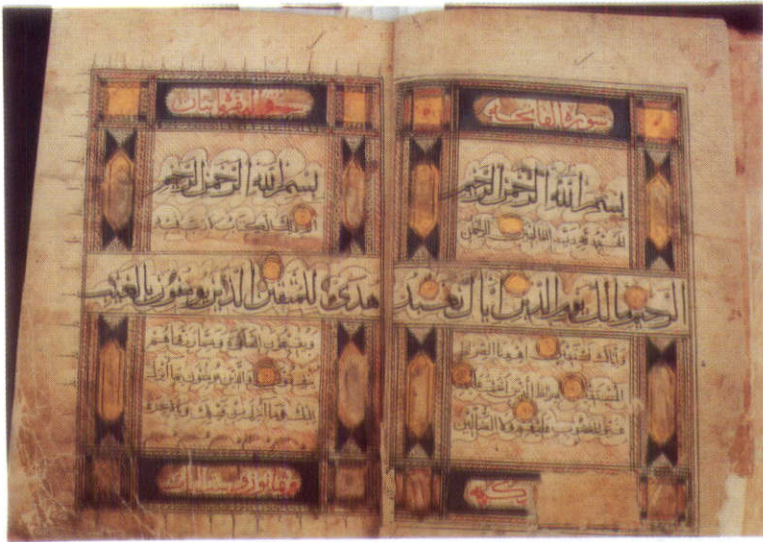 سورة الفاتحة
بسم الله الرحمن الرحيم
الحمد لله رب العالمين الرحمن
الرحيم مالك يوم الدين اياك نعبد
واياك نستعين اهدنا الصراط
المستقيم صراط الذين انعمت عليهم
غير المغضوب عليهم ولا الضالين
سورة البقرة مائتان
بسم الله الرحمن الرحيم
الم ذلك الكتاب لا ريب فيه
هدى للمتقين الذين يؤمنون بالغيب
ويقيمون الصلوة ومما رزقناهم
ينفقون والذين يؤمنون بما انزل
اليك وما انزل من قبلك وبالاخرة
وثمانون وست